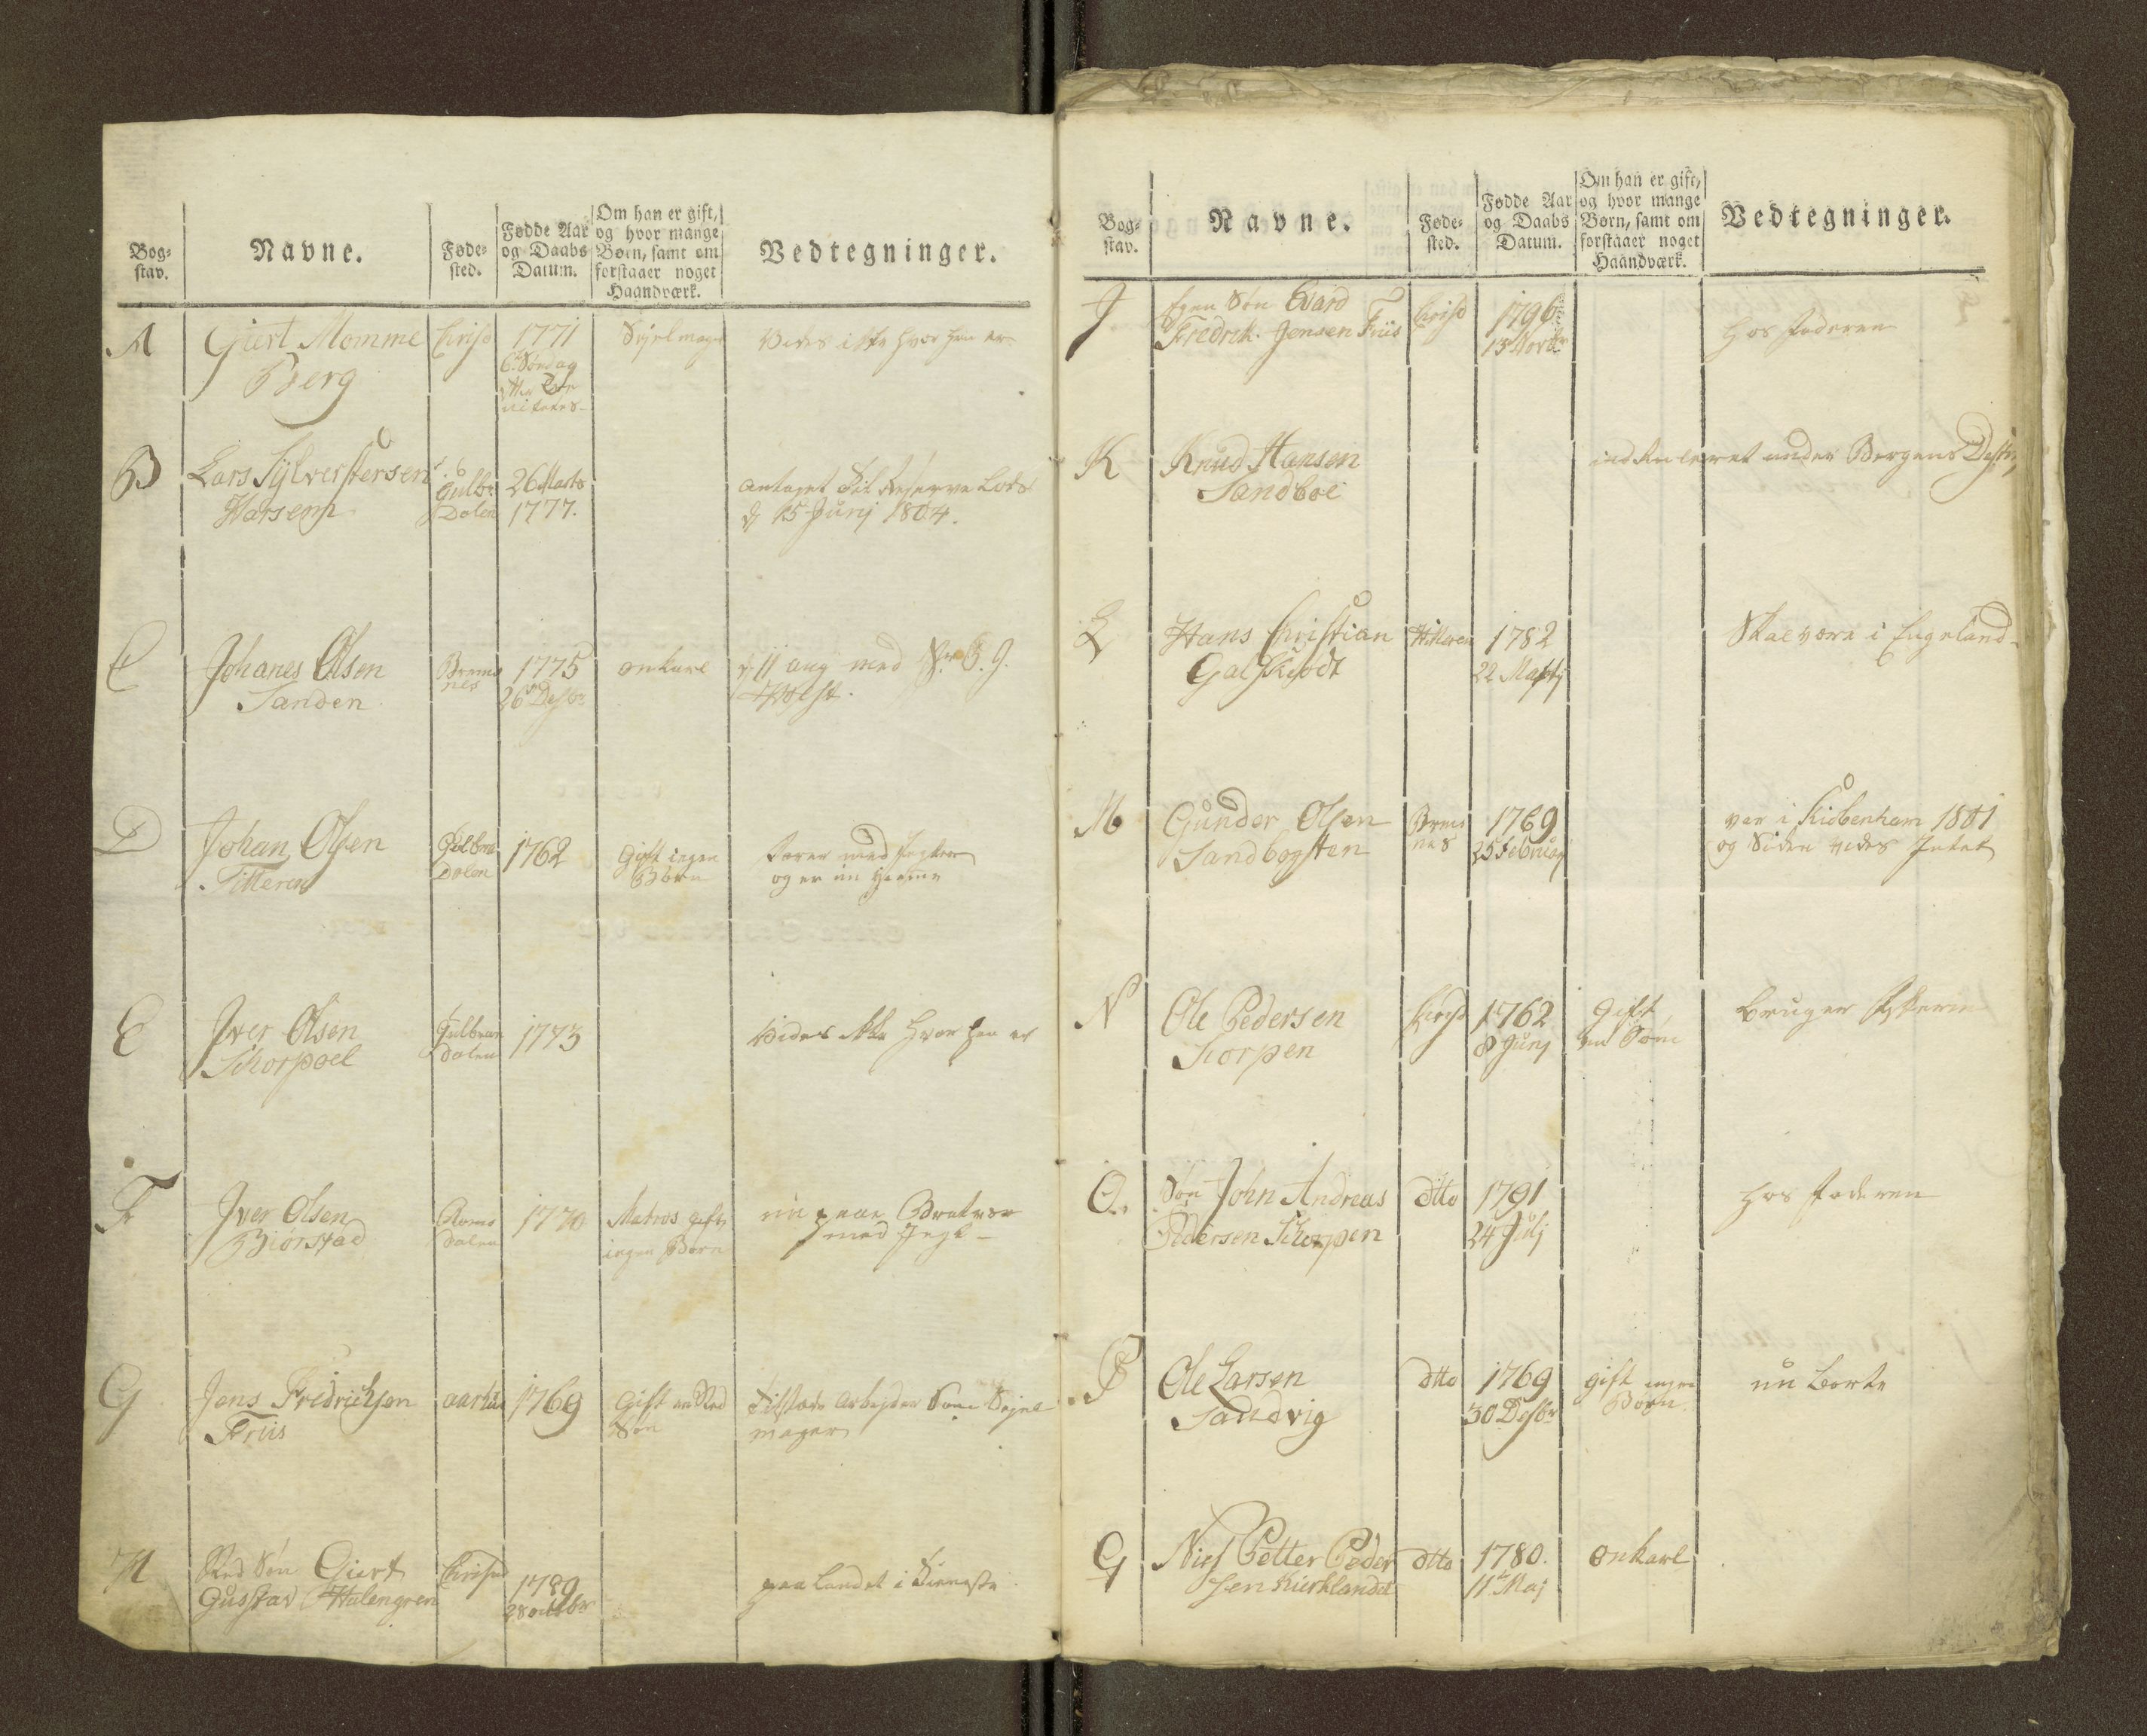 Bog-
stav.
Navne.
Føde-
sted.
Fødde Aar
og Daabs
Datum.
Om han er gift,
og hvor mange
Børn, samt om
forstaaer noget
Haandværk.
Vedtegninger.
A
Giert Momme
Berg
Christ
1771
6te Søndag
Sejelmager
Vides ikke hvor han er
B
Lars Sylverstersen
Harsem
Gulbr
Dalen
26 Marts
1777.
antaget til Reserve Lods
d 15 Junj 1804.
C
Johanes Olsen
Sanden
Brems
nes
1775
26 Desbr
Enkarl
d 11 aug med
Holst.
D
Johan Olsen
Titteren
Gulbrn
Dalen
1762
Gift ingen
Børn
farer med Jagter
og er nu hiemme
E
Iver Olsen
Schorpoel
Gulbran
dalen
1773
Vides ikke hvor han er
F
Iver Olsen
Biorstad
Roms
dalen
1770
Matros gift
ingen Børn
nu paa Bratvær
med Jagt
G
Jens Fredrichsen
Friis
aarhus
1769
Gift en Sted
Søn
tilstæde arbejder som Sejel
mager
H
Sted Søn Giert
Gustav Halengren
Christ
1789
28 octobr
paa Landet i Tieneste
Bog-
stav.
Navne.
Føde-
sted.
Fødde Aar
og Daabs
Datum.
Om han er gift,
og hvor mange
Børn, samt om
forstaaer noget
Haandværk.
Vedtegninger.
J
Egen Søn Evard
Fredrik Jensen Friis
Christ
1796
13 Novbr
hos faderen
K
Knud Hansen
Sandboe
indrulleret under Bergens Distr
L
Hans Christian
Galschiødt
Hitteren
1782
22 Martj
Skal være i Engeland
M
Gunder Olsen
Sandbogsten
Brems
nes
1769
25 Februarj
var i Kiøbenham 1801
og Siden vides Intet
N
Ole Pedersen
Scorpen
Christ
1762
8 Junj
Gift
en Søn
bruger fiskerie
O.
Søn John Andreas
Pedersen Schorpen
dtto
1791
24 Julj
hos faderen
P
Ole Larsen
Sandvig
dtto
1769
30 Desbr
gift ingen
Børn
nu borte
G
Niels Petter Peder
sen Kierklandet
dtto
1780.
11te Maj
Enkarl